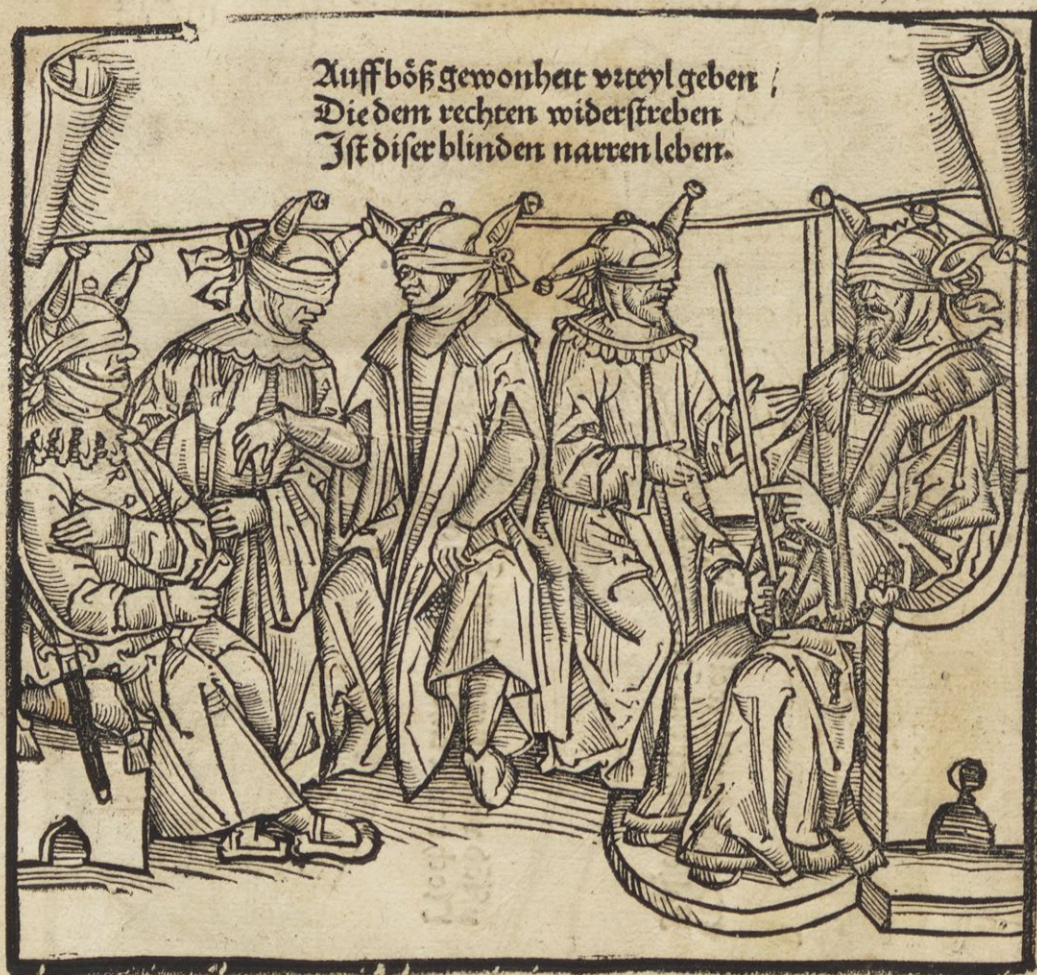 Auff böß gewonheit vrteyl geben /
Die dem rechten widerstreben
Ist diser blinden narren leben.